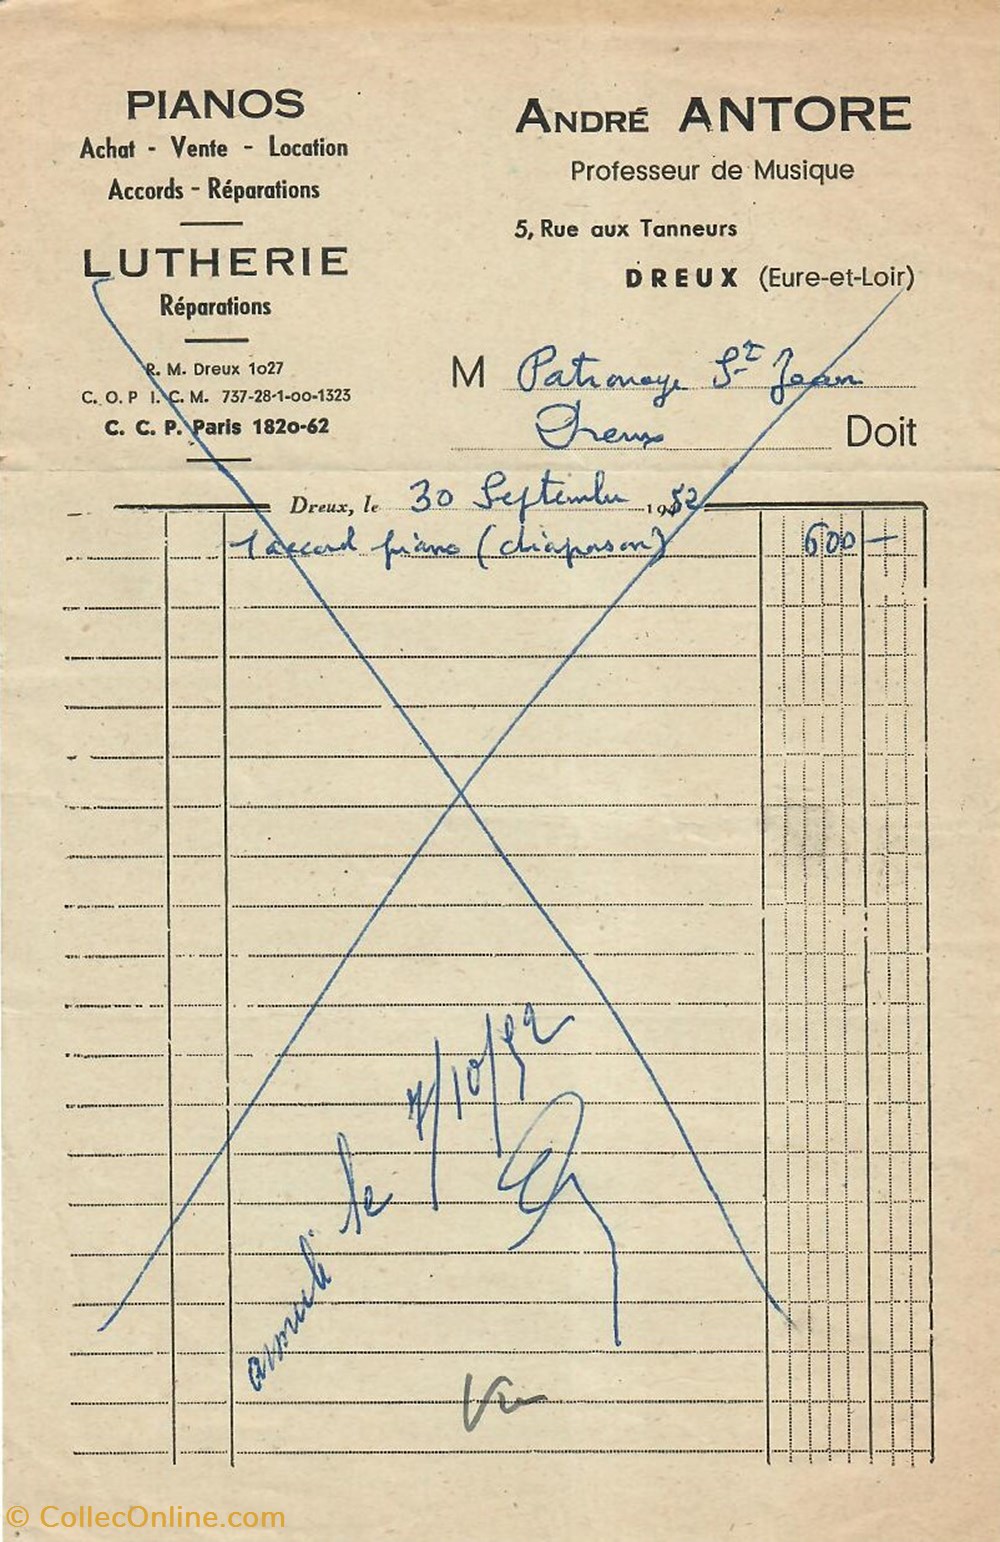 PIANOS
Achat - Vente - Location
Accords - Réparations
LUTHERIE
Réparations
R. M. Dreux 1027
C. O. P I. C. M. 737-28-1-00-1323
C. C. P. Paris 1820-62
ANDRÉ ANTORE
Professeur de Musique
5, Rue aux Tanneurs
DREUX (Eure-et-Loir)
M Patronage St Jean
Dreux Doit
Dreux, le 30 Septembre 1952
1 accord piano (diapason) 600 —
le 7/10/52
Vu
© CollecOnline.com